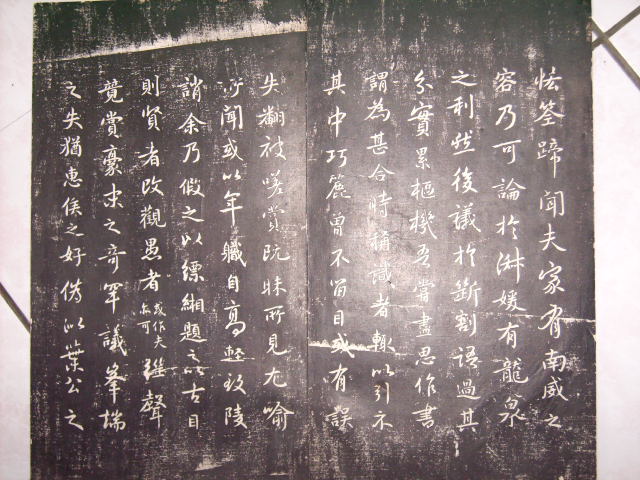 怯筌蹄聞夫家有南威之
容乃可論於淑媛有龍泉
之利然後議於斷割語過其
分實累樞機吾嘗盡思作書
謂為甚合時稱識者輒以引示
其中巧麗曾不留目或有誤
失翻被嗟賞既昧所見尤喻
所聞或以年職自高輕致陵
誚余乃假之以縹緗題之以古目
則賢者改觀愚者或作夫亦可繼聲
競賞豪末之奇罕議峯端
之失猶惠侯之好偽似葉公之